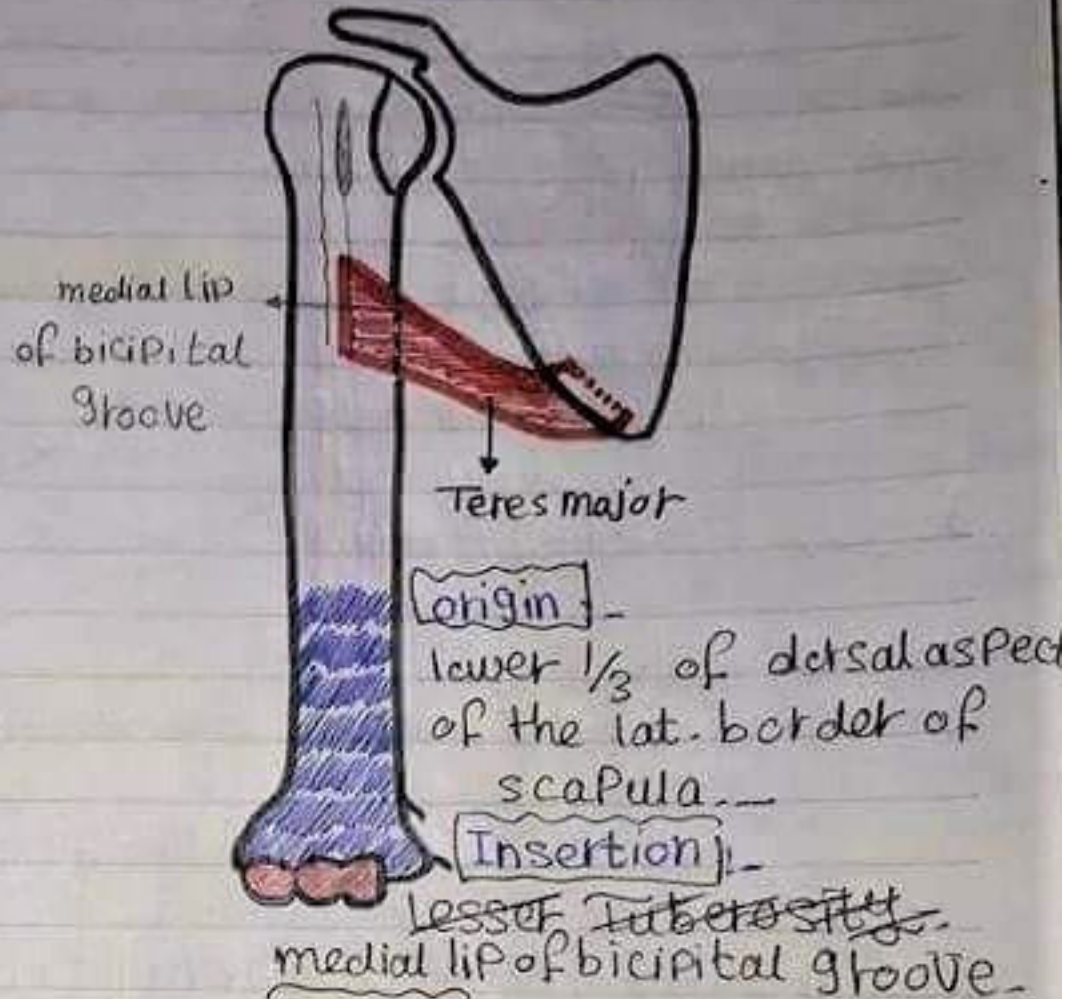 medial lip
of bicipital
groove
Teres major
origin:-
lower 1/3 of dorsal aspect
of the lat. border of
scapula.-
Insertion:-
Lesser Tuberosity.
medial lip of bicipital groove-